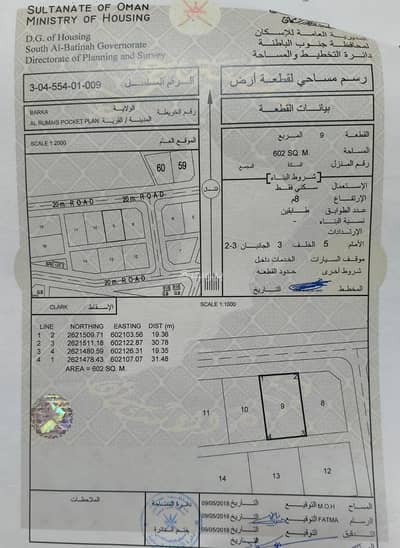 SULTANATE OF OMAN
MINISTRY OF HOUSING
D.G. of Housing
South Al-Batinah Governorate
Directorate of Planning and Survey
المديرية العامة للإسكان
لمحافظة جنوب الباطنة
دائرة التخطيط والمساحة
3-04-554-01-009
الرقم المسلسل
رسم مساحي لقطعة أرض
BARKA
الولاية
رقم الخريطة
AL RUMAIS POCKET PLAN
المدينة / القرية
SCALE 1:2000
الموقع العام
بيانات القطعة
القطعة 9 المربع
المساحة 602 SQ. M.
رقم المنازل المجمع
شروط البناء
الإستعمال سكني فقط
الإرتفاع 8م
عدد الطوابق طابقين
نسبة البناء
الإرتدادات
الأمام 5 الخلف 3 الجانبان 3-2
موقف السيارات داخل
شروط أخرى حدود القطعة
المخطط التاريخ
60 59
20m. ROAD
20m. ROAD
الشمال
CLARK
الإسقاط
SCALE 1:1000
LINE NORTHING EASTING DIST (m)
1 2 2621509.71 602103.56 19.36
2 3 2621511.18 602122.87 30.78
3 4 2621480.59 602126.31 19.35
4 1 2621478.43 602107.07 31.48
AREA = 602 SQ. M.
1 2
11 10 9 8
4 3
14 13 12
الملاحظات
دائرة المساحة
ختم الدائرة
09/05/2018 التاريخ التوقيع M.O.H المساح
09/05/2018 التاريخ التوقيع FATMA الرسام
09/05/2018 التاريخ التوقيع